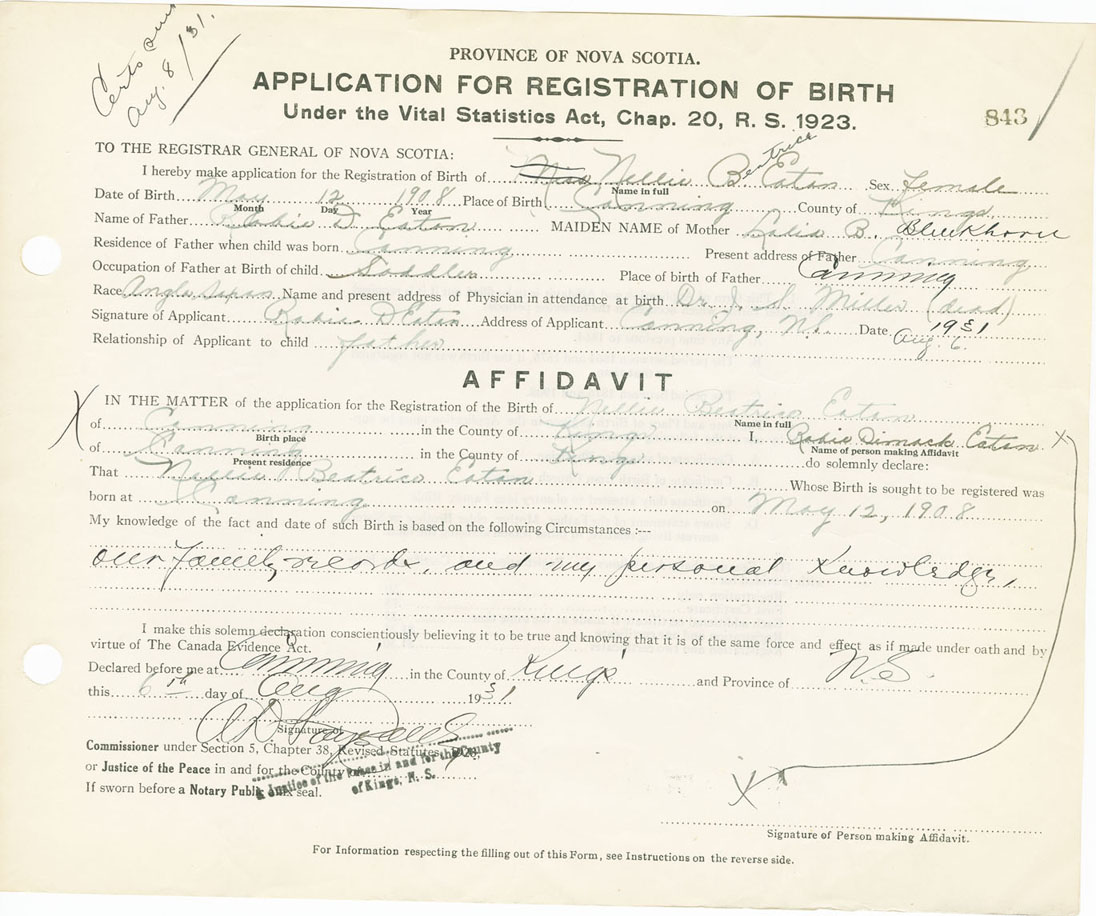 Certs
Aug. 8/31.
PROVINCE OF NOVA SCOTIA.
APPLICATION FOR REGISTRATION OF BIRTH
Under the Vital Statistics Act, Chap. 20, R. S. 1923.
843
TO THE REGISTRAR GENERAL OF NOVA SCOTIA:
I hereby make application for the Registration of Birth of Miss Nellie Beatrice Eaton Sex Female
Name in full
Date of Birth May 12 1908 Place of Birth Canning County of Kings
Month Day Year
Name of Father Robie D. Eaton MAIDEN NAME of Mother Lalia B. Blenkhorn
Residence of Father when child was born Canning Present address of Father Canning
Occupation of Father at Birth of child Saddler Place of birth of Father Canning
Race Anglo Saxon Name and present address of Physician in attendance at birth Dr. J. S. Miller (dead)
Signature of Applicant Robie D Eaton Address of Applicant Canning, N.S. Date Aug. 6 1931
Relationship of Applicant to child father
AFFIDAVIT
IN THE MATTER of the application for the Registration of the Birth of Nellie Beatrice Eaton
Name in full
of Canning in the County of Kings I, Robie Dimock Eaton
Birth place Name of person making Affidavit
of Canning in the County of Kings do solemnly declare:
Present residence
That Nellie Beatrice Eaton Whose Birth is sought to be registered was
born at Canning on May 12, 1908
My knowledge of the fact and date of such Birth is based on the following Circumstances :---
our family records, and my personal knowledge,
I make this solemn declaration conscientiously believing it to be true and knowing that it is of the same force and effect as if made under oath and by
virtue of The Canada Evidence Act.
Declared before me at Canning in the County of Kings and Province of N.S.
this 6th day of Aug 1931
Signature of
Commissioner under Section 5, Chapter 38, Revised Statutes,
or Justice of the Peace in and for the County
If sworn before a Notary Public seal.
A Justice of the Peace in and for the County
of Kings, N. S.
Signature of Person making Affidavit.
For Information respecting the filling out of this Form, see Instructions on the reverse side.